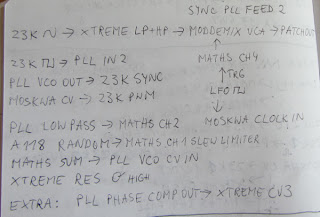 SYNC PLL FEED 2
23K ∿ → XTREME LP+HP → MODDEMIX VCA → PATCHOUT
↑
23K ⊓⊔ → PLL IN 2 MATHS CH4
PLL VCO OUT → 23K SYNC ↑ TRG
MOSKWA CV → 23K PWM LFO ⊓⊔
↓
PLL LOWPASS → MATHS CH2 MOSKWA CLOCK IN
A118 RANDOM → MATHS CH1 SLEW LIMITER
MATHS SUM → PLL VCO CV IN
XTREME RES HIGH
EXTRA: PLL PHASE COMP OUT → XTREME CV3